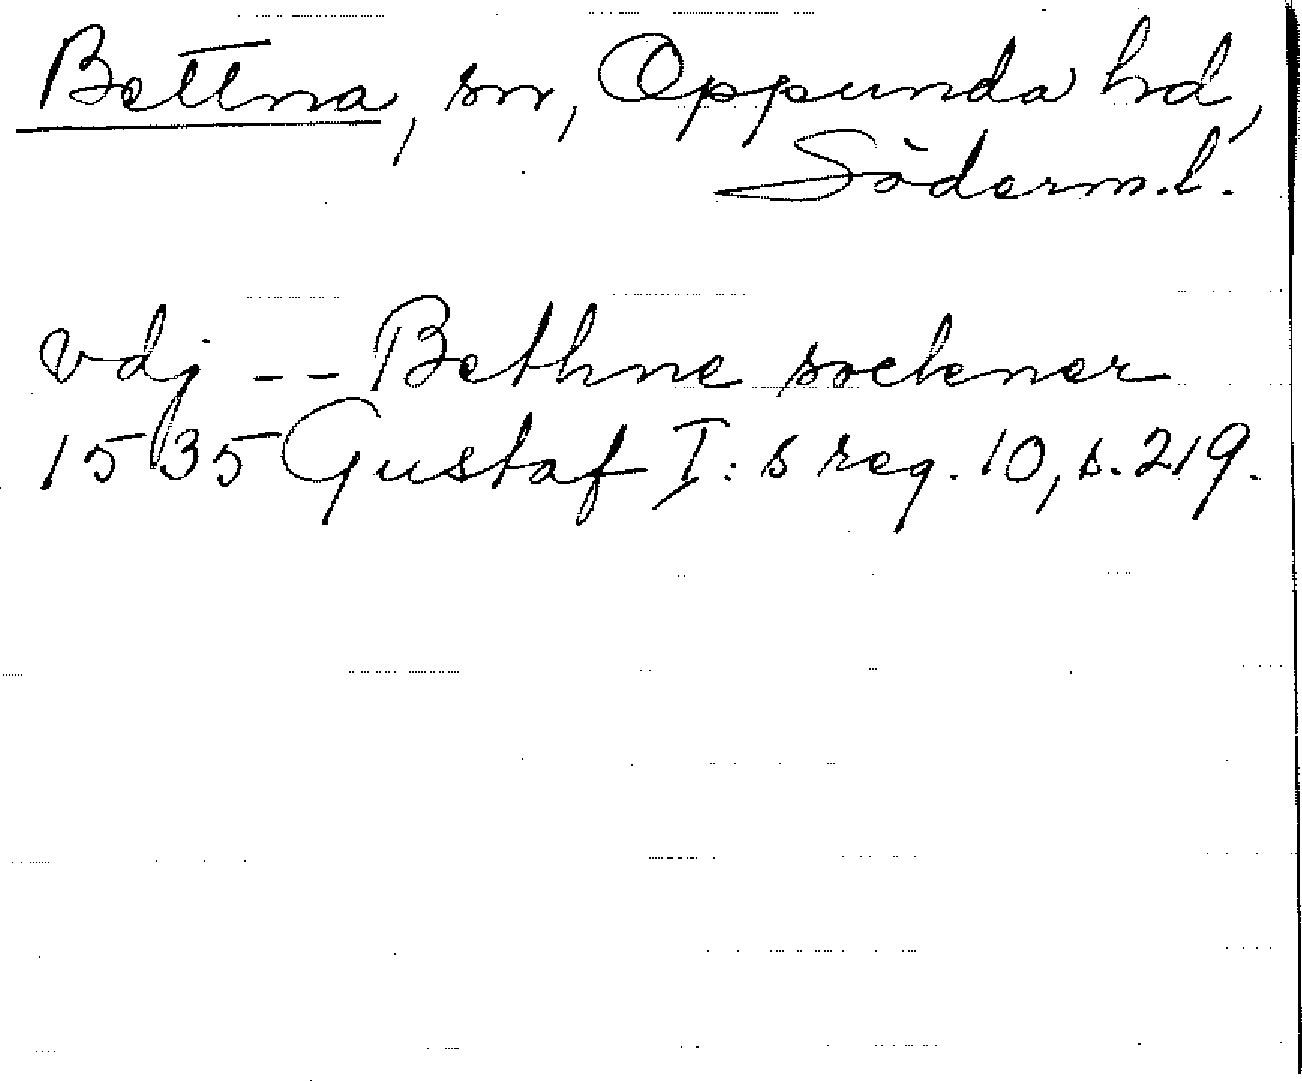 Bettna, sn, Oppunda hd,
Söderm.l.
vdj -- Bethne sockner
1535 Gustaf I:s reg. 10, s. 219.